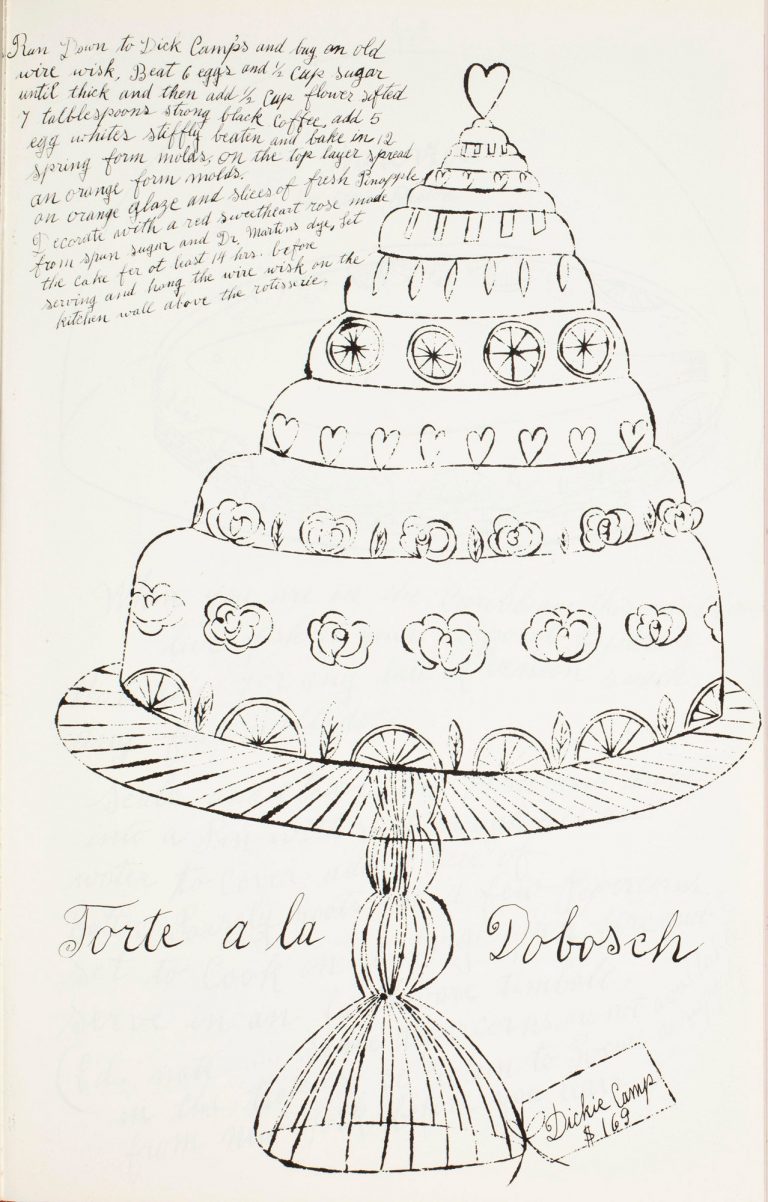 Run Down to Dick Camps and buy an old
wire wisk. Beat 6 eggs and ½ Cup sugar
until thick and then add ½ Cup flower sifted
7 talblespoons strong black Coffee, add 5
egg whites stiffly beaten and bake in 12
spring form molds, on the top layer spread
an orange form molds.
an orange glaze and slices of fresh Pinapple
Decorate with a red sweetheart rose made
from spun sugar and Dr. Martens dye, Let
the cake fer ot least 14 hrs. before
serving and hang the wire wisk on the
kitchen wall above the rotisserie.
Torte a la Dobosch
Dickie Camp
$ 169